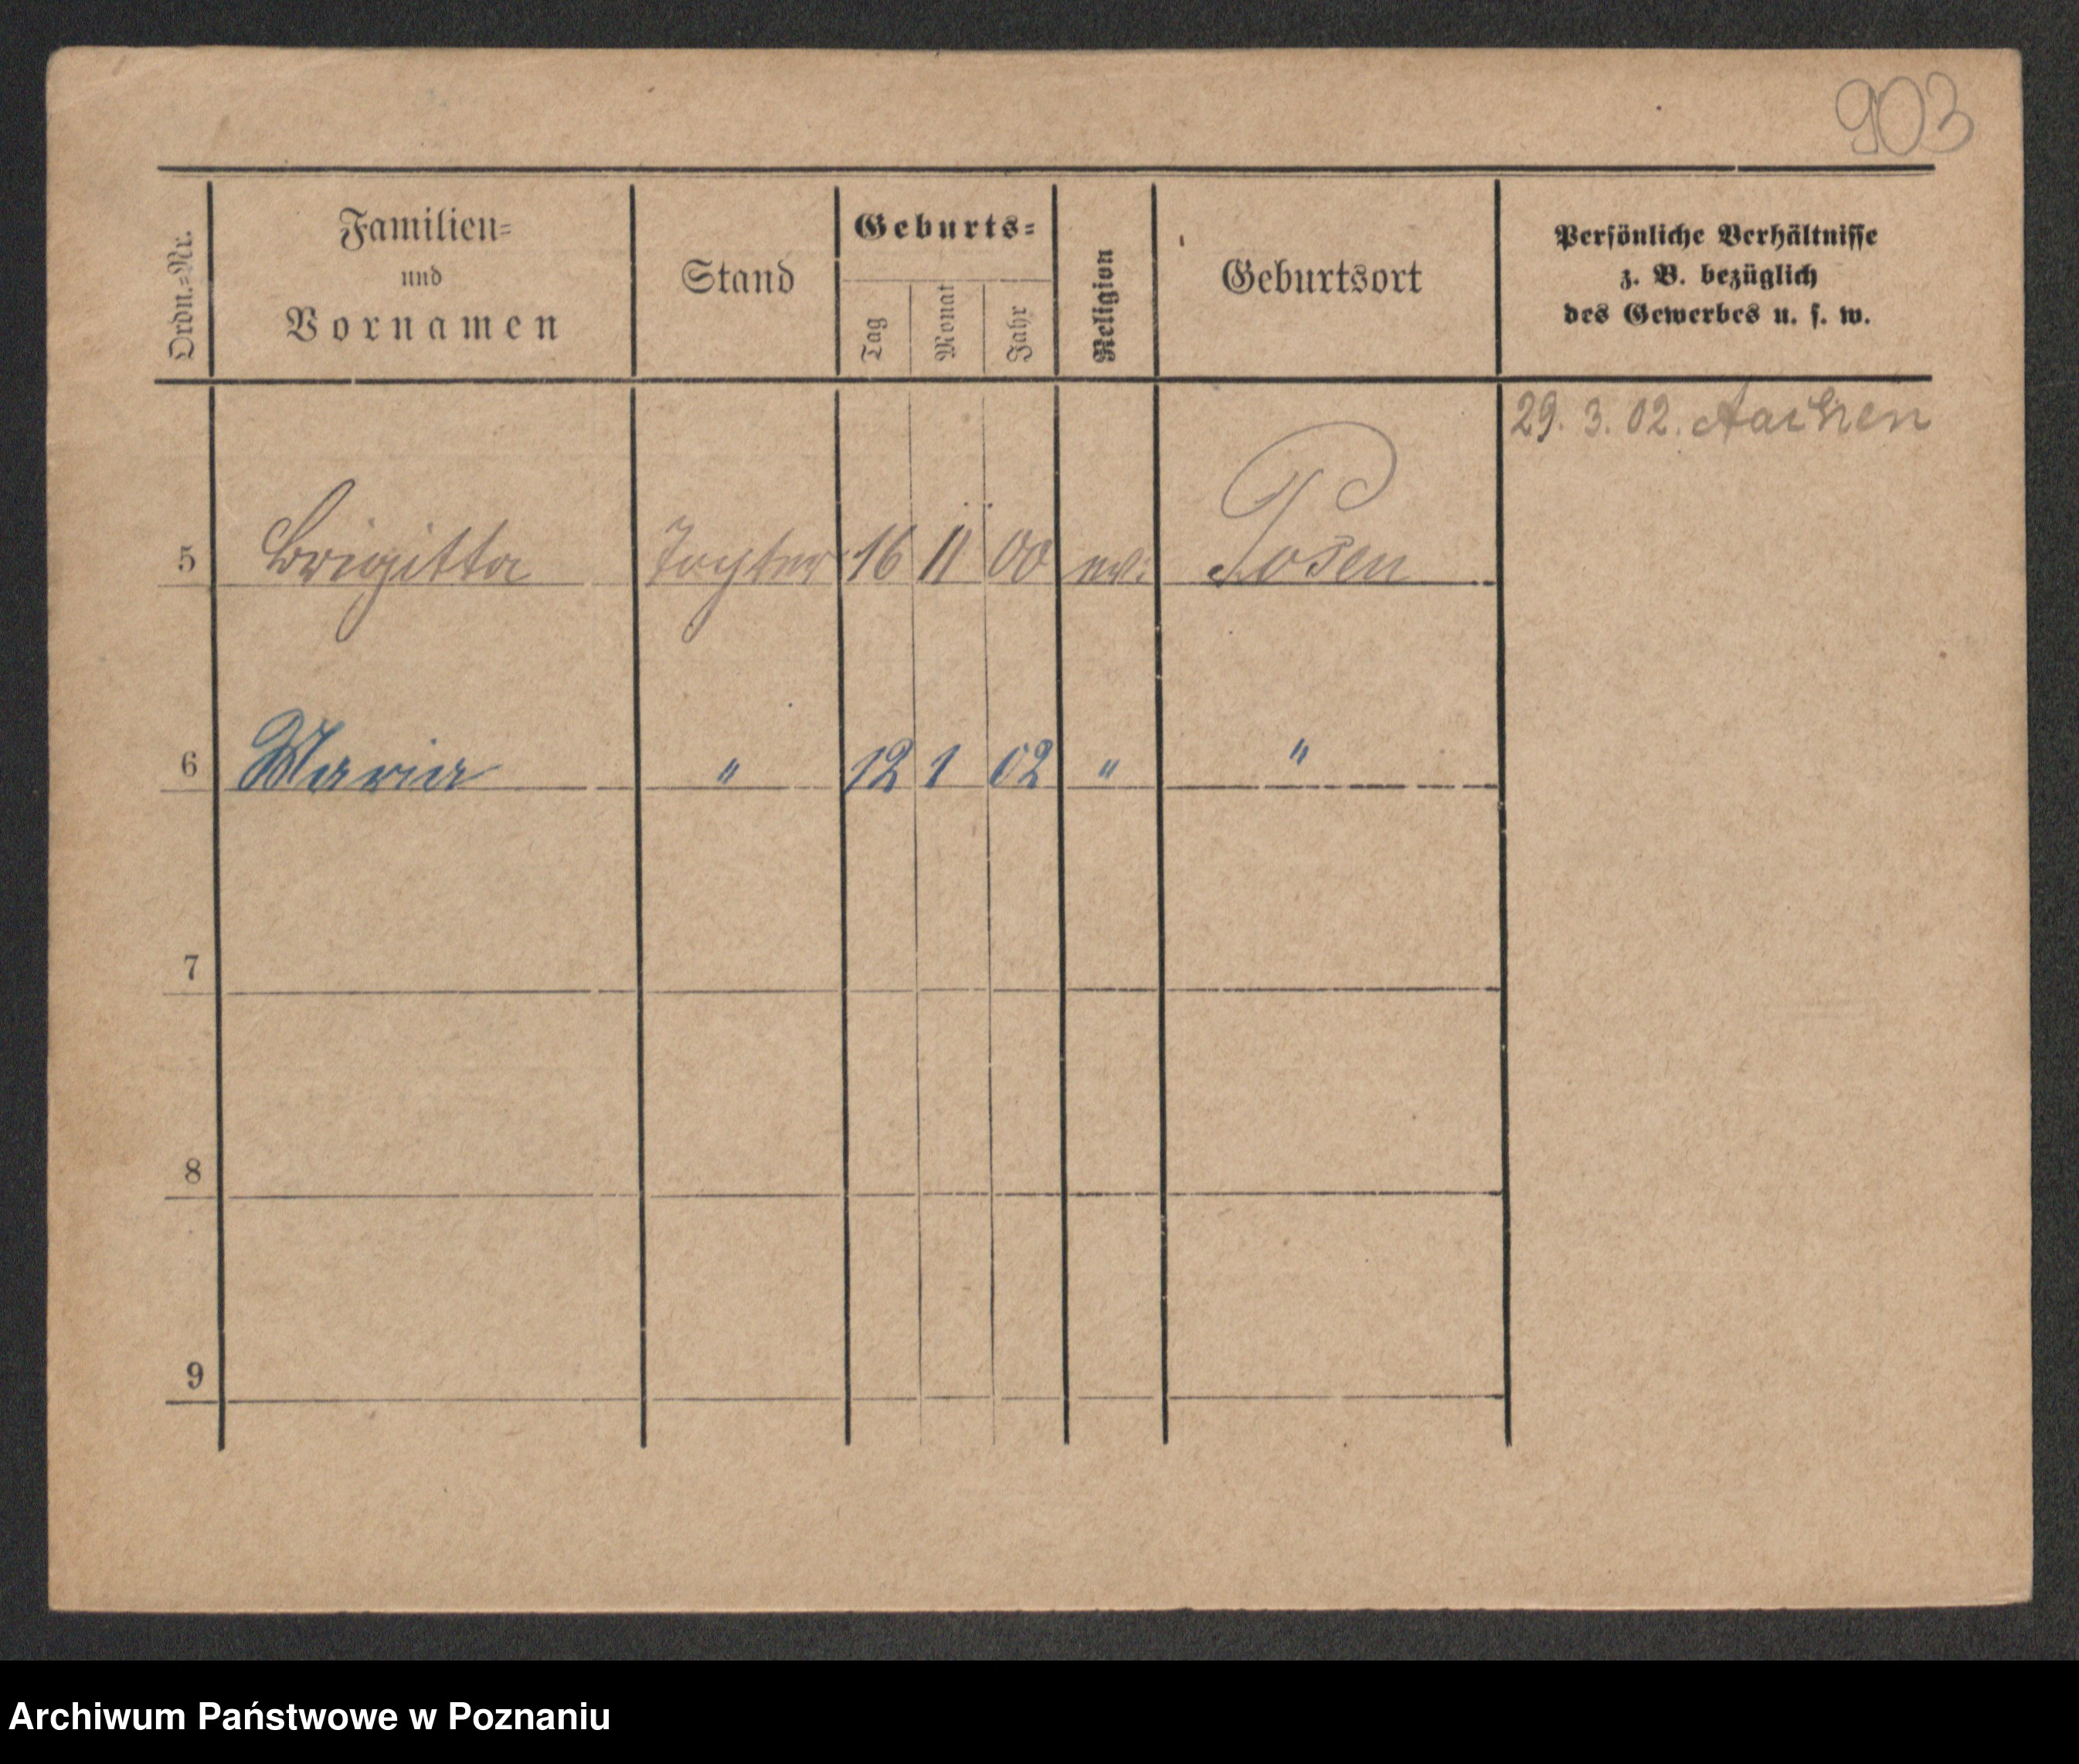 903
Ordn.=Nr.
Familien=
und
Vornamen
Stand
Geburts=
Tag
Monat
Jahr
Religion
Geburtsort
Persönliche Verhältnisse
z. B. bezüglich
des Gewerbes u. s. w.
29. 3. 02. Aachen
5 Brigitta Tochter 16 11 00 ev. Posen
6 Maria " 12 1 02 " "
7
8
9
Archiwum Państwowe w Poznaniu